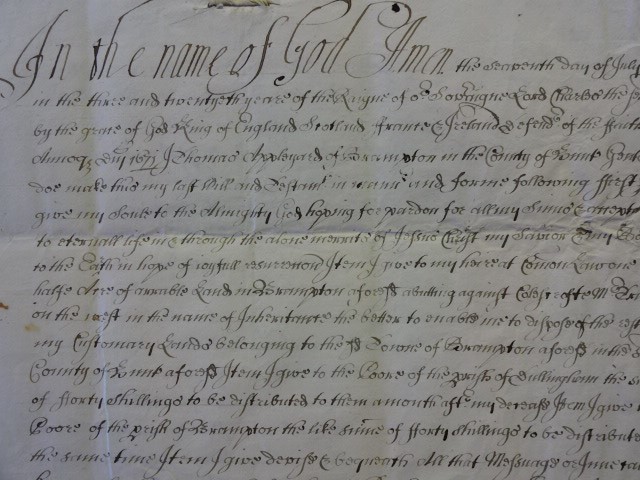 In the name of God Amen the seaventh day of July
in the three and twentyeth yeare of the Reigne of or Soveraigne Lord Charles the
by the grace of God King of England Scotland France & Ireland defendr of the Faith
Annoq Dni 1671 I Thomas Appleyard of Brampton in the County of Hunt Gent
doe make this my last Will and Testamt in mannr and forme following ffirst I
give my Soule to the Almighty God hopping for pardon for all my Sinns &
to eternall life in & through the alone merrits of Jesus Christ my Saviour & my
to the Earth in hope of joyfull resurreccon Item I give to my heire at Comon Law one
halfe Acre of arrable Land in Brampton aforesd abutting against
on the west in the name of Inheritance the better to enable me to dispose of the rest
my Customary Lands belonging to the sd Towne of Brampton aforesd in the sd
County of Hunt aforesd Item I give to the Poore of the prish of Dullingham the
of fforty shillings to be distributed to them a month aftr my decease Item I give
Poore of the prish of Brampton the like sume of fforty shillings to be distributed
the same time Item I give devise & bequeath All that Messuage or